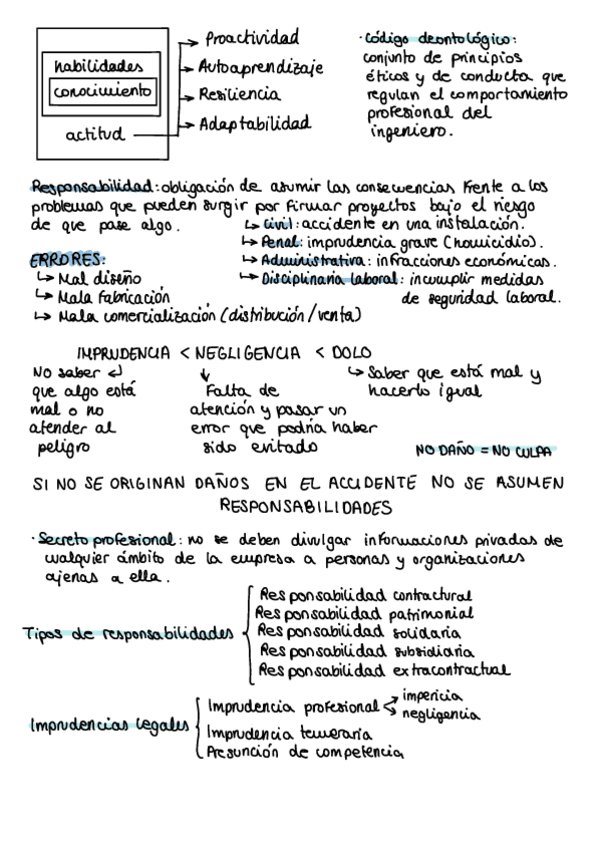 habilidades
conocimiento
actitud
→ Proactividad
→ Autoaprendizaje
→ Resiliencia
→ Adaptabilidad
· Código deontológico:
conjunto de principios
éticos y de conducta que
regulan el comportamiento
profesional del
ingeniero.
Responsabilidad: obligación de asumir las consecuencias frente a los
problemas que pueden surgir por firmar proyectos bajo el riesgo
de que pase algo.
↳ Civil: accidente en una instalación.
↳ Penal: imprudencia grave (homicidio).
↳ Administrativa: infracciones económicas.
↳ Disciplinaria laboral: incumplir medidas
de seguridad laboral.
ERRORES:
↳ Mal diseño
↳ Mala fabricación
↳ Mala comercialización (distribución/venta)
IMPRUDENCIA < NEGLIGENCIA < DOLO
No saber
que algo está
mal o no
atender al
peligro
Falta de
atención y pasar un
error que podría haber
sido evitado
↳ Saber que está mal y
hacerlo igual
NO DAÑO = NO CULPA
SI NO SE ORIGINAN DAÑOS EN EL ACCIDENTE NO SE ASUMEN
RESPONSABILIDADES
· Secreto profesional: no se deben divulgar informaciones privadas de
cualquier ámbito de la empresa a personas y organizaciones
ajenas a ella.
Tipos de responsabilidades
Responsabilidad contractural
Responsabilidad patrimonial
Responsabilidad solidaria
Responsabilidad subsidiaria
Responsabilidad extracontractual
Imprudencias legales
Imprudencia profesional
impericia
negligencia
Imprudencia temeraria
Presunción de competencia